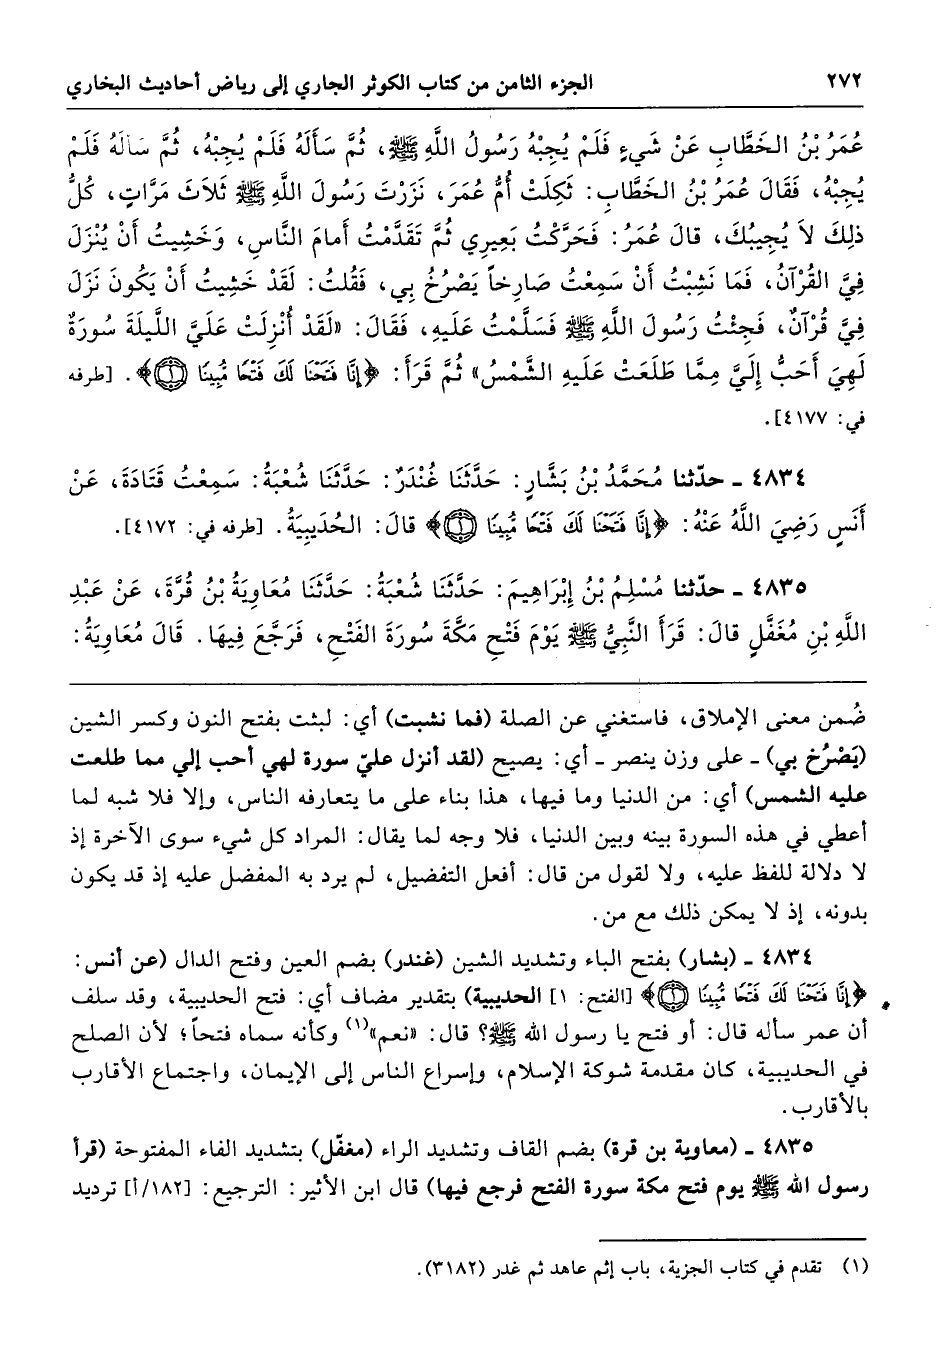 ٢٧٢ الجزء الثامن من كتاب الكوثر الجاري إلى رياض أحاديث البخاري
عُمَرُ بْنُ الخَطَّابِ عَنْ شَيءٍ فَلَمْ يُجِبْهُ رَسُولُ اللَّهِ ﷺ، ثُمَّ سَأَلَهُ فَلَمْ يُجِبْهُ، ثُمَّ سَأَلَهُ فَلَمْ
يُجِبْهُ، فَقَالَ عُمَرُ بْنُ الخَطَّابِ: ثَكِلَتْ أُمُّ عُمَرَ، نَزَرْتَ رَسُولَ اللَّهِ ﷺ ثَلَاثَ مَرَّاتٍ، كُلُّ
ذلِكَ لاَ يُجِيبُكَ، قالَ عُمَرُ: فَحَرَّكْتُ بَعِيرِي ثُمَّ تَقَدَّمْتُ أمامَ النَّاسِ، وَخَشِيتُ أَنْ يُنْزَلَ
فِيَّ القُرْآنُ، فَمَا نَشِبْتُ أَنْ سَمِعْتُ صَارِخاً يَصْرُخُ بِي، فَقُلتُ: لَقَدْ خَشِيتُ أَنْ يَكُونَ نَزَلَ
فِيَّ قُرْآنٌ، فَجِئْتُ رَسُولَ اللَّهِ ﷺ فَسَلَّمْتُ عَلَيهِ، فَقَالَ: «لَقَدْ أُنْزِلَتْ عَلَيَّ اللَّيلَةَ سُورَةٌ
لَهِيَ أَحَبُّ إِلَيَّ مِمَّا طَلَعَتْ عَلَيهِ الشَّمْسُ» ثُمَّ قَرَأَ: ﴿إِنَّا فَتَحْنَا لَكَ فَتْحًا مُّبِينًا ۝١﴾. [طرفه
في: ٤١٧٧].
٤٨٣٤ ـ حدّثنا مُحَمَّدُ بْنُ بَشَّارٍ: حَدَّثَنَا غُنْدَرٌ: حَدَّثَنَا شُعْبَةُ: سَمِعْتُ قَتَادَةَ، عَنْ
أَنَسٍ رَضِيَ اللَّهُ عَنْهُ: ﴿إِنَّا فَتَحْنَا لَكَ فَتْحًا مُّبِينًا ۝١﴾ قالَ: الحُدَيبِيَةُ. [طرفه في: ٤١٧٢].
٤٨٣٥ ـ حدّثنا مُسْلِمُ بْنُ إِبْرَاهِيمَ: حَدَّثَنَا شُعْبَةُ: حَدَّثَنَا مُعَاوِيَةُ بْنُ قُرَّةَ، عَنْ عَبْدِ
اللَّهِ بْنِ مُغَفَّلٍ قالَ: قَرَأَ النَّبِيُّ ﷺ يَوْمَ فَتْحِ مَكَّةَ سُورَةَ الفَتْحِ، فَرَجَّعَ فِيهَا. قَالَ مُعَاوِيَةُ:
ضُمن معنى الإملاق، فاستغني عن الصلة (فما نشبت) أي: لبثت بفتح النون وكسر الشين
(يَصْرُخ بي) ـ على وزن ينصر ـ أي: يصيح (لقد أنزل عليّ سورة لهي أحب إلي مما طلعت
عليه الشمس) أي: من الدنيا وما فيها، هذا بناء على ما يتعارفه الناس، وإلا فلا شبه لما
أعطي في هذه السورة بينه وبين الدنيا، فلا وجه لما يقال: المراد كل شيء سوى الآخرة إذ
لا دلالة للفظ عليه، ولا لقول من قال: أفعل التفضيل، لم يرد به المفضل عليه إذ قد يكون
بدونه، إذ لا يمكن ذلك مع من.
٤٨٣٤ ـ (بشار) بفتح الباء وتشديد الشين (غندر) بضم العين وفتح الدال (عن أنس:
﴿إِنَّا فَتَحْنَا لَكَ فَتْحًا مُّبِينًا ۝١﴾ [الفتح: ١] الحديبية) بتقدير مضاف أي: فتح الحديبية، وقد سلف
أن عمر سأله قال: أو فتح يا رسول الله ﷺ؟ قال: «نعم»(١) وكأنه سماه فتحاً؛ لأن الصلح
في الحديبية، كان مقدمة شوكة الإسلام، وإسراع الناس إلى الإيمان، واجتماع الأقارب
بالأقارب.
٤٨٣٥ ـ (معاوية بن قرة) بضم القاف وتشديد الراء (مغفّل) بتشديد الفاء المفتوحة (قرأ
رسول الله ﷺ يوم فتح مكة سورة الفتح فرجع فيها) قال ابن الأثير: الترجيع: [١٨٢/أ] ترديد
(١) تقدم في كتاب الجزية، باب إثم عاهد ثم غدر (٣١٨٢).